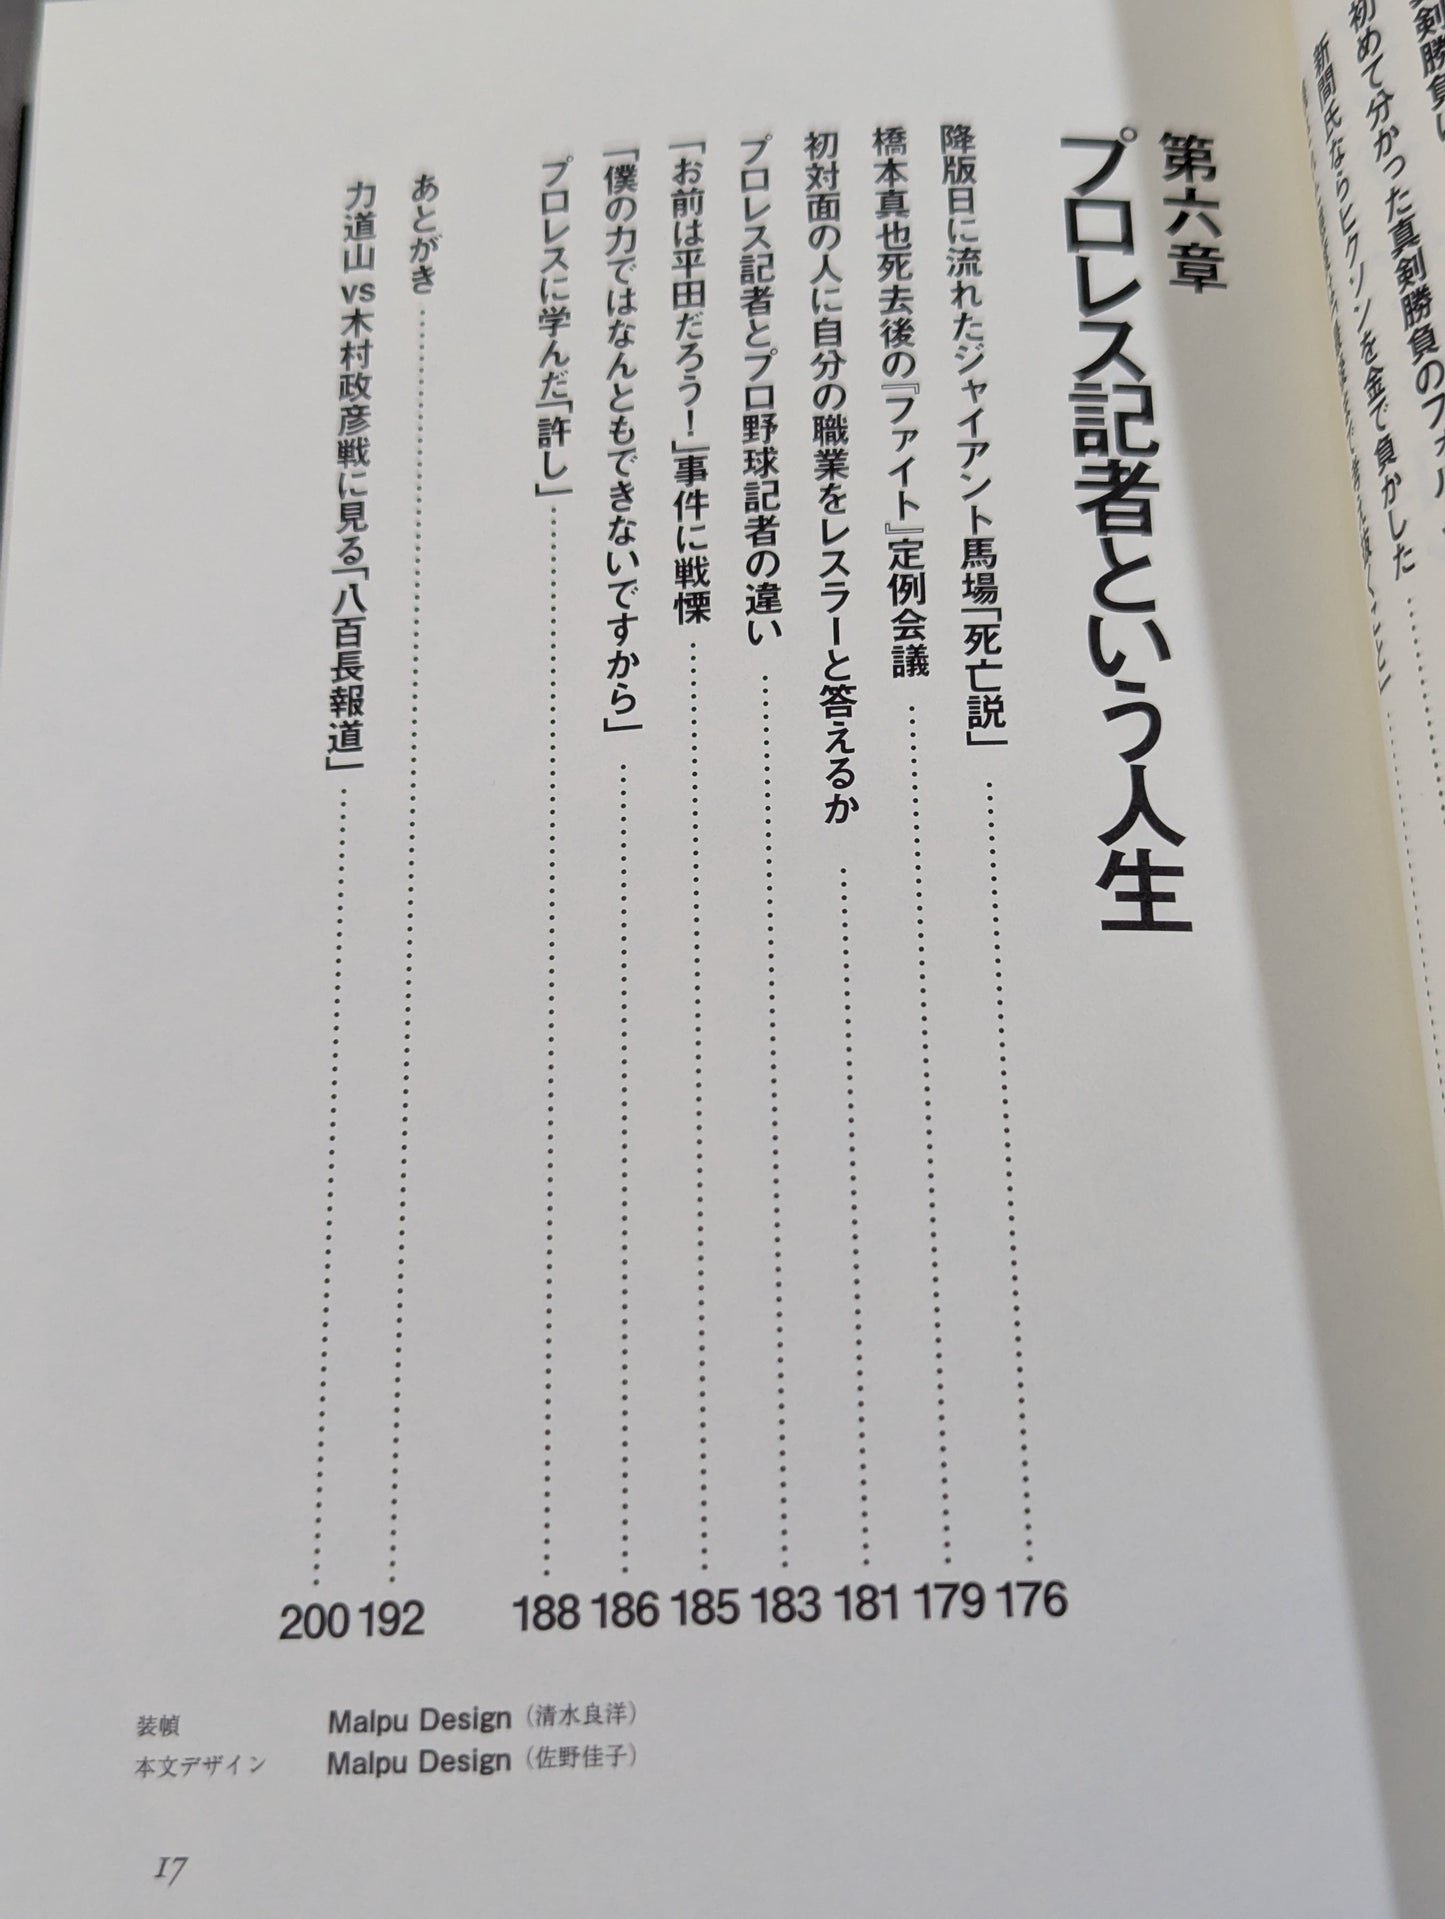 初めて分かった真剣勝負の
新間氏ならヒクソンを金で負かした
第六章
プロレス記者という人生
降版日に流れたジャイアント馬場「死亡説」……176
橋本真也死去後の『ファイト』定例会議……179
初対面の人に自分の職業をレスラーと答えるか……181
プロレス記者とプロ野球記者の違い……183
「お前は平田だろう！」事件に戦慄……185
「僕の力ではなんともできないですから」……186
プロレスに学んだ「許し」……188
あとがき……192
力道山vs木村政彦戦に見る「八百長報道」……200
装幀 Malpu Design（清水良洋）
本文デザイン Malpu Design（佐野佳子）
17